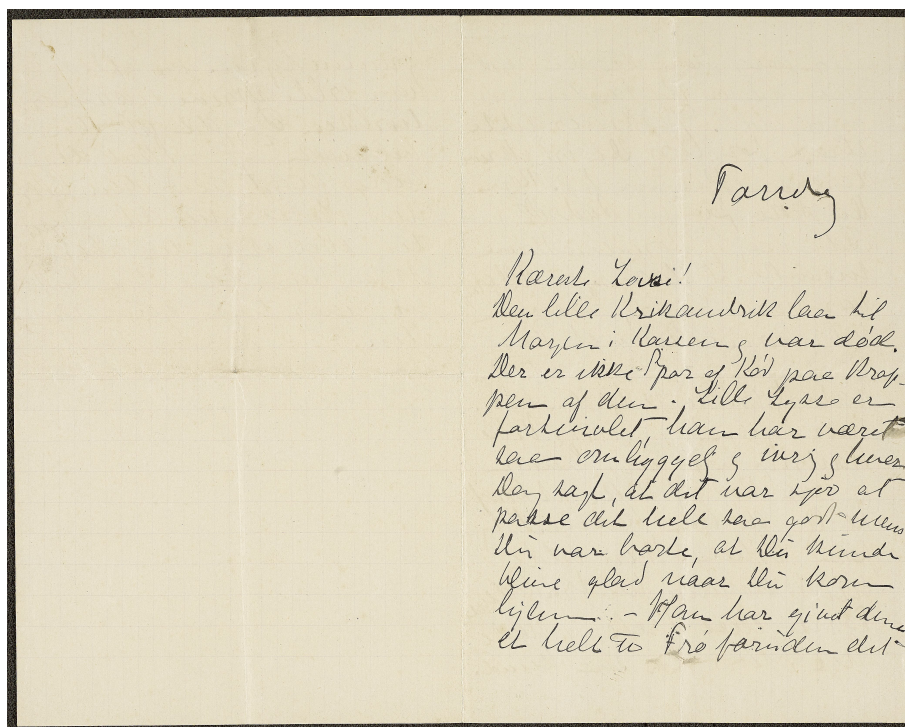 Torsdag
Kæreste Lassi!
Den lille Krikandrik laa til
Morgen i Kassen og var død.
Der er ikke Spor af Kød paa Krop-
pen af den. Lille Lysse er
fortvivlet, han har været
saa omhyggelig og ivrig og hver
Dag sagt, at det var sjov at
passe det hele saa godt mens
Du var borte, at Du kunde
blive glad naar Du kom
hjem. – Han har givet dem
et helt Frø foruden det